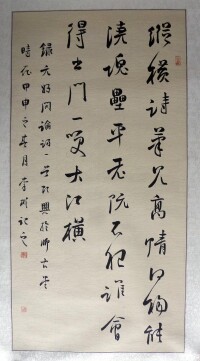 縱橫詩筆見高情何物能
澆塊壘平老阮不狂誰會
得出門一笑大江橫
錄元好問論詩一首
甲申之春月